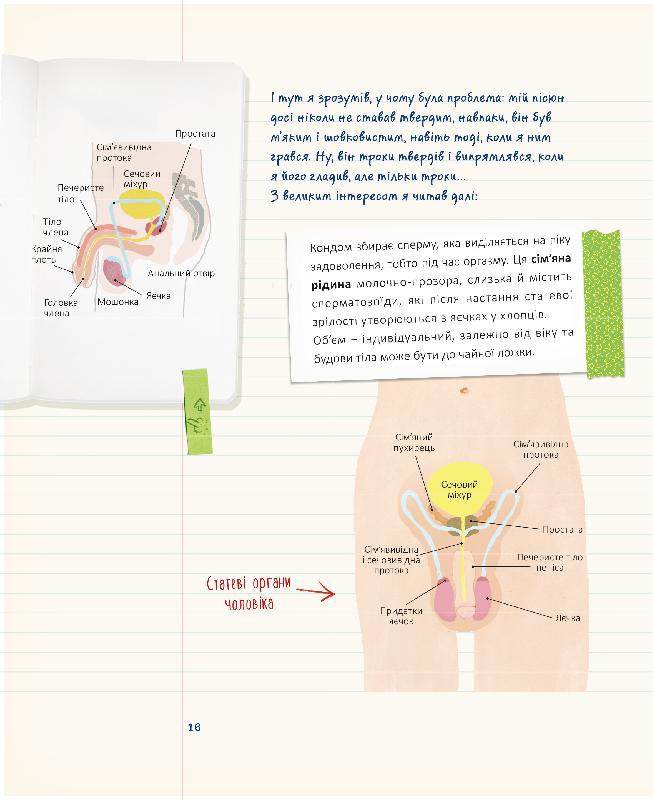 І тут я зрозумів, у чому була проблема: мій пісюн
досі ніколи не ставав твердим, навпаки, він був
м'яким і шовковистим, навіть тоді, коли я ним
грався. Ну, він трохи твердів і випрямлявся, коли
я його гладив, але тільки трохи...
З великим інтересом я читав далі:
Простата
Сім'явивідна
протока
Сечовий
міхур
Печеристе
тіло
Тіло
члена
Крайня
плоть
Анальний отвір
Яєчка
Мошонка
Головка
члена
Кондом збирає сперму, яка виділяється на піку
задоволення, тобто під час оргазму. Ця сім'яна
рідина молочно-прозора, слизька й містить
сперматозоїди, які після настання статевої
зрілості утворюються в яєчках у хлопців.
Об'єм – індивідуальний, залежно від віку та
будови тіла може бути до чайної ложки.
Сім'яний
пухирець
Сім'явивідна
протока
Сечовий
міхур
Простата
Сім'явивідна
і сечовивідна
протока
Печеристе тіло
пеніса
Придатки
яєчок
Яєчка
Статеві органи
чоловіка
16